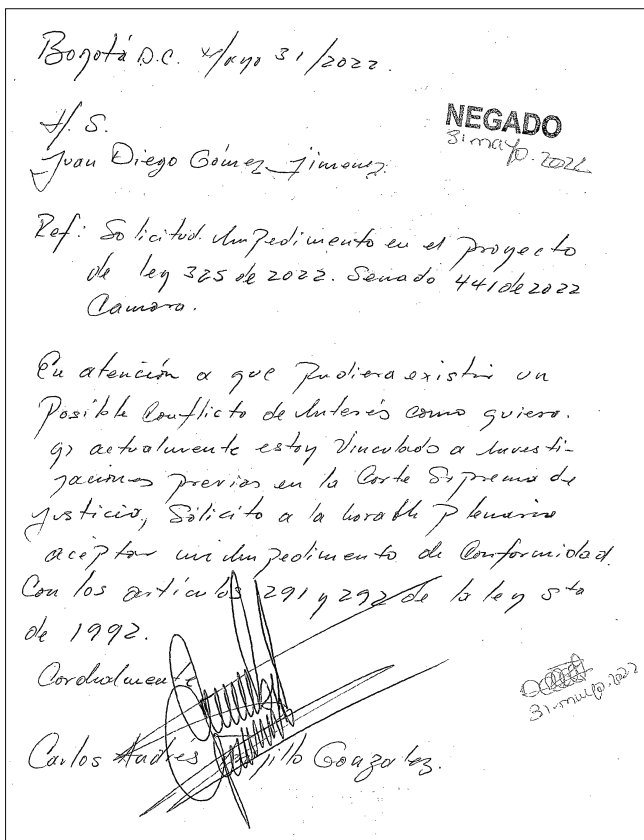 Bogotá D.C. Mayo 31/2022.
NEGADO
31 mayo. 2022
H. S.
Juan Diego Gómez Jimenez.
Ref: Solicitud Impedimento en el proyecto
de ley 325 de 2022. Senado 441 de 2022
Camara.
En atención a que Pudiera existir un
Posible Conflicto de Interés como quiera.
q' actualmente estoy Vinculado a Investi-
gaciones previas en la Corte Suprema de
Justicia, Solicito a la horable Plenaria
aceptar mi Impedimento de Conformidad.
Con los artículos 291 y 292 de la ley 5ta
de 1992.
Cordialmente
Carlos Andrés Gonzalez.
31-mayo-2022